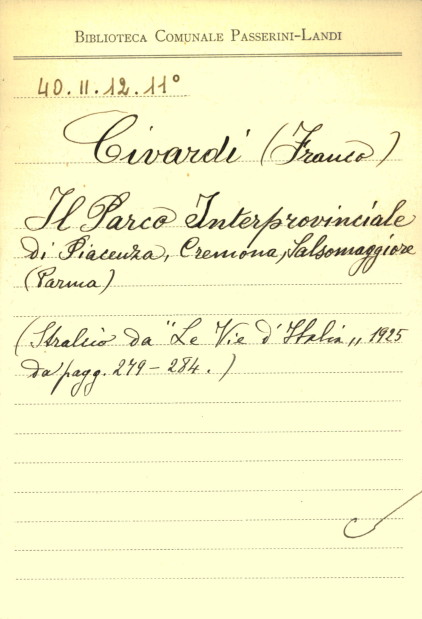 BIBLIOTECA COMUNALE PASSERINI-LANDI
40.II.12.11°
Civardi (Franco)
Il Parco Interprovinciale
di Piacenza, Cremona, Salsomaggiore
(Parma)
(Stralcio da "Le Vie d'Italia„ 1925
da pagg. 279-284.)